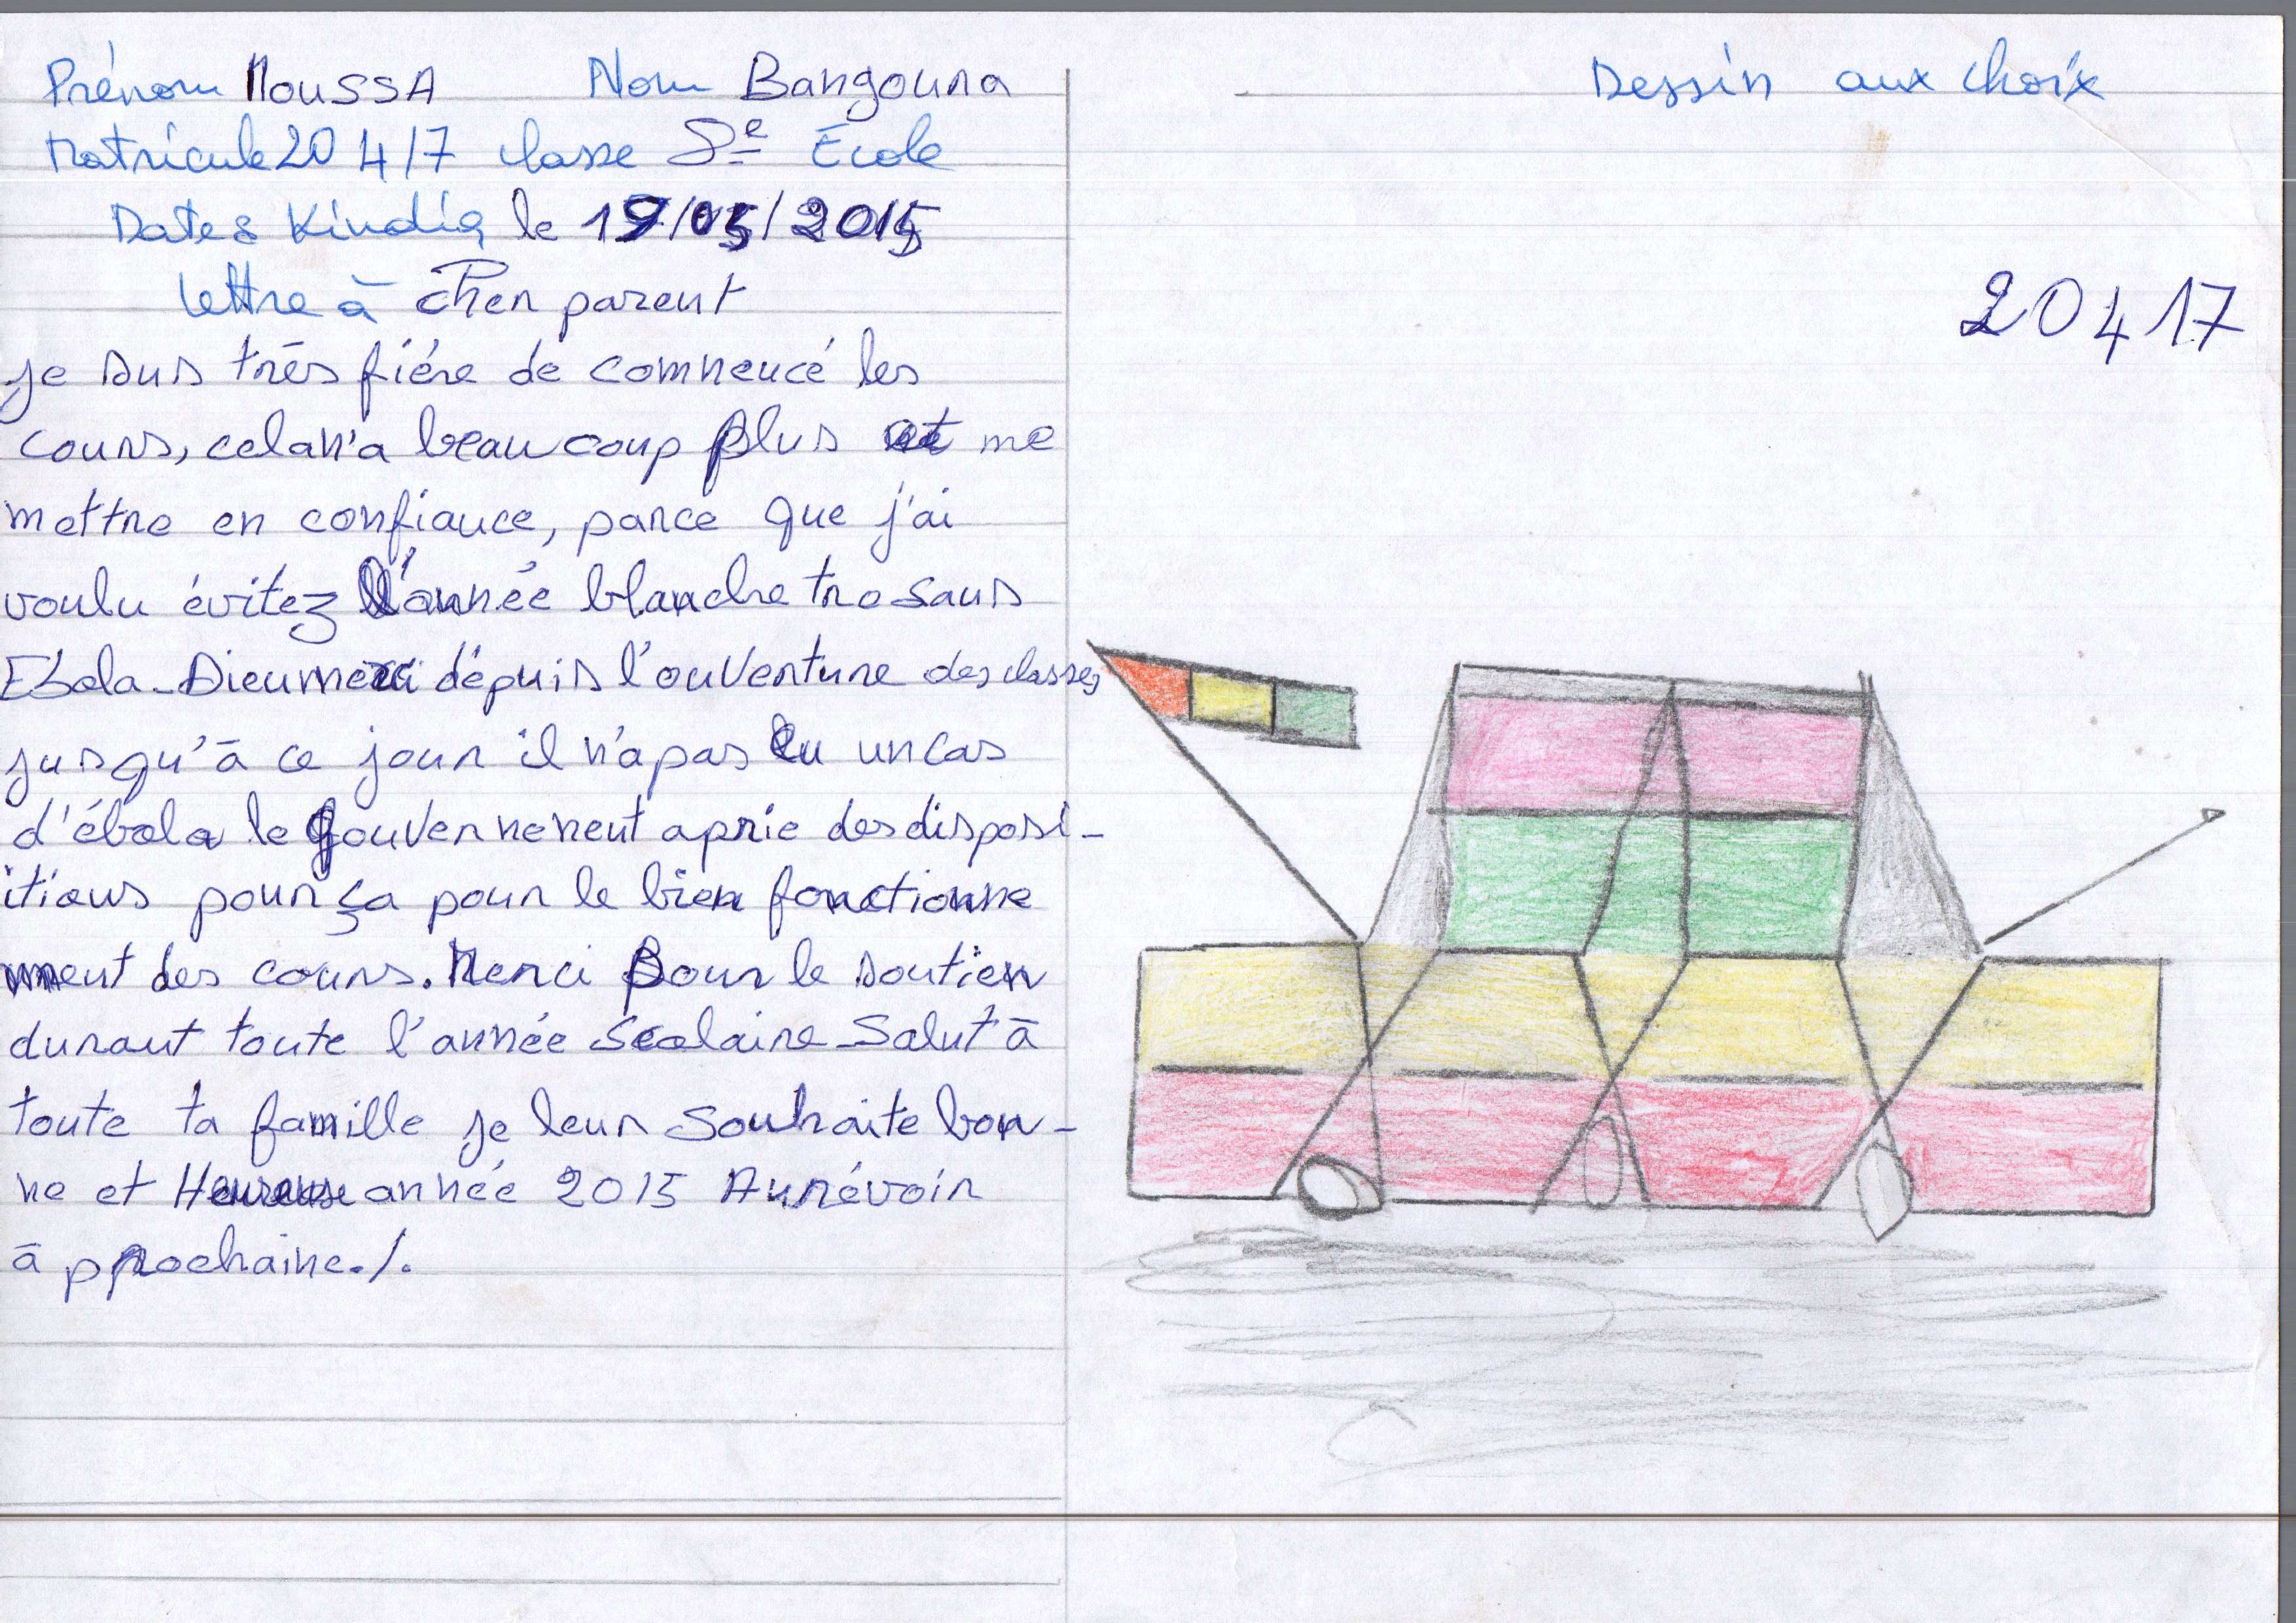 Prénom Moussa Nom Bangoura
Matricule 20417 classe 8e École
Dates Kindia le 19/05/2015
lettre à Cher parent
je suis très fière de commencé les
cours, cela m'a beaucoup plus et me
mettre en confiance, parce que j'ai
voulu évitez l'année blanche
Ebola - Dieumerci dépuis l'ouverture des classes
jusqu'à ce jour il n'a pas eu un cas
d'ébola le Gouvernement a prie des disposi-
itions pour ça pour le bien fonctionne
ment des cours. Merci Pour le soutien
durant toute l'année Scolaire - Salut à
toute ta famille je leur souhaite bon-
ne et Heureuse année 2015 Aurévoir
à prochaine./.
Dessin aux choix
20417